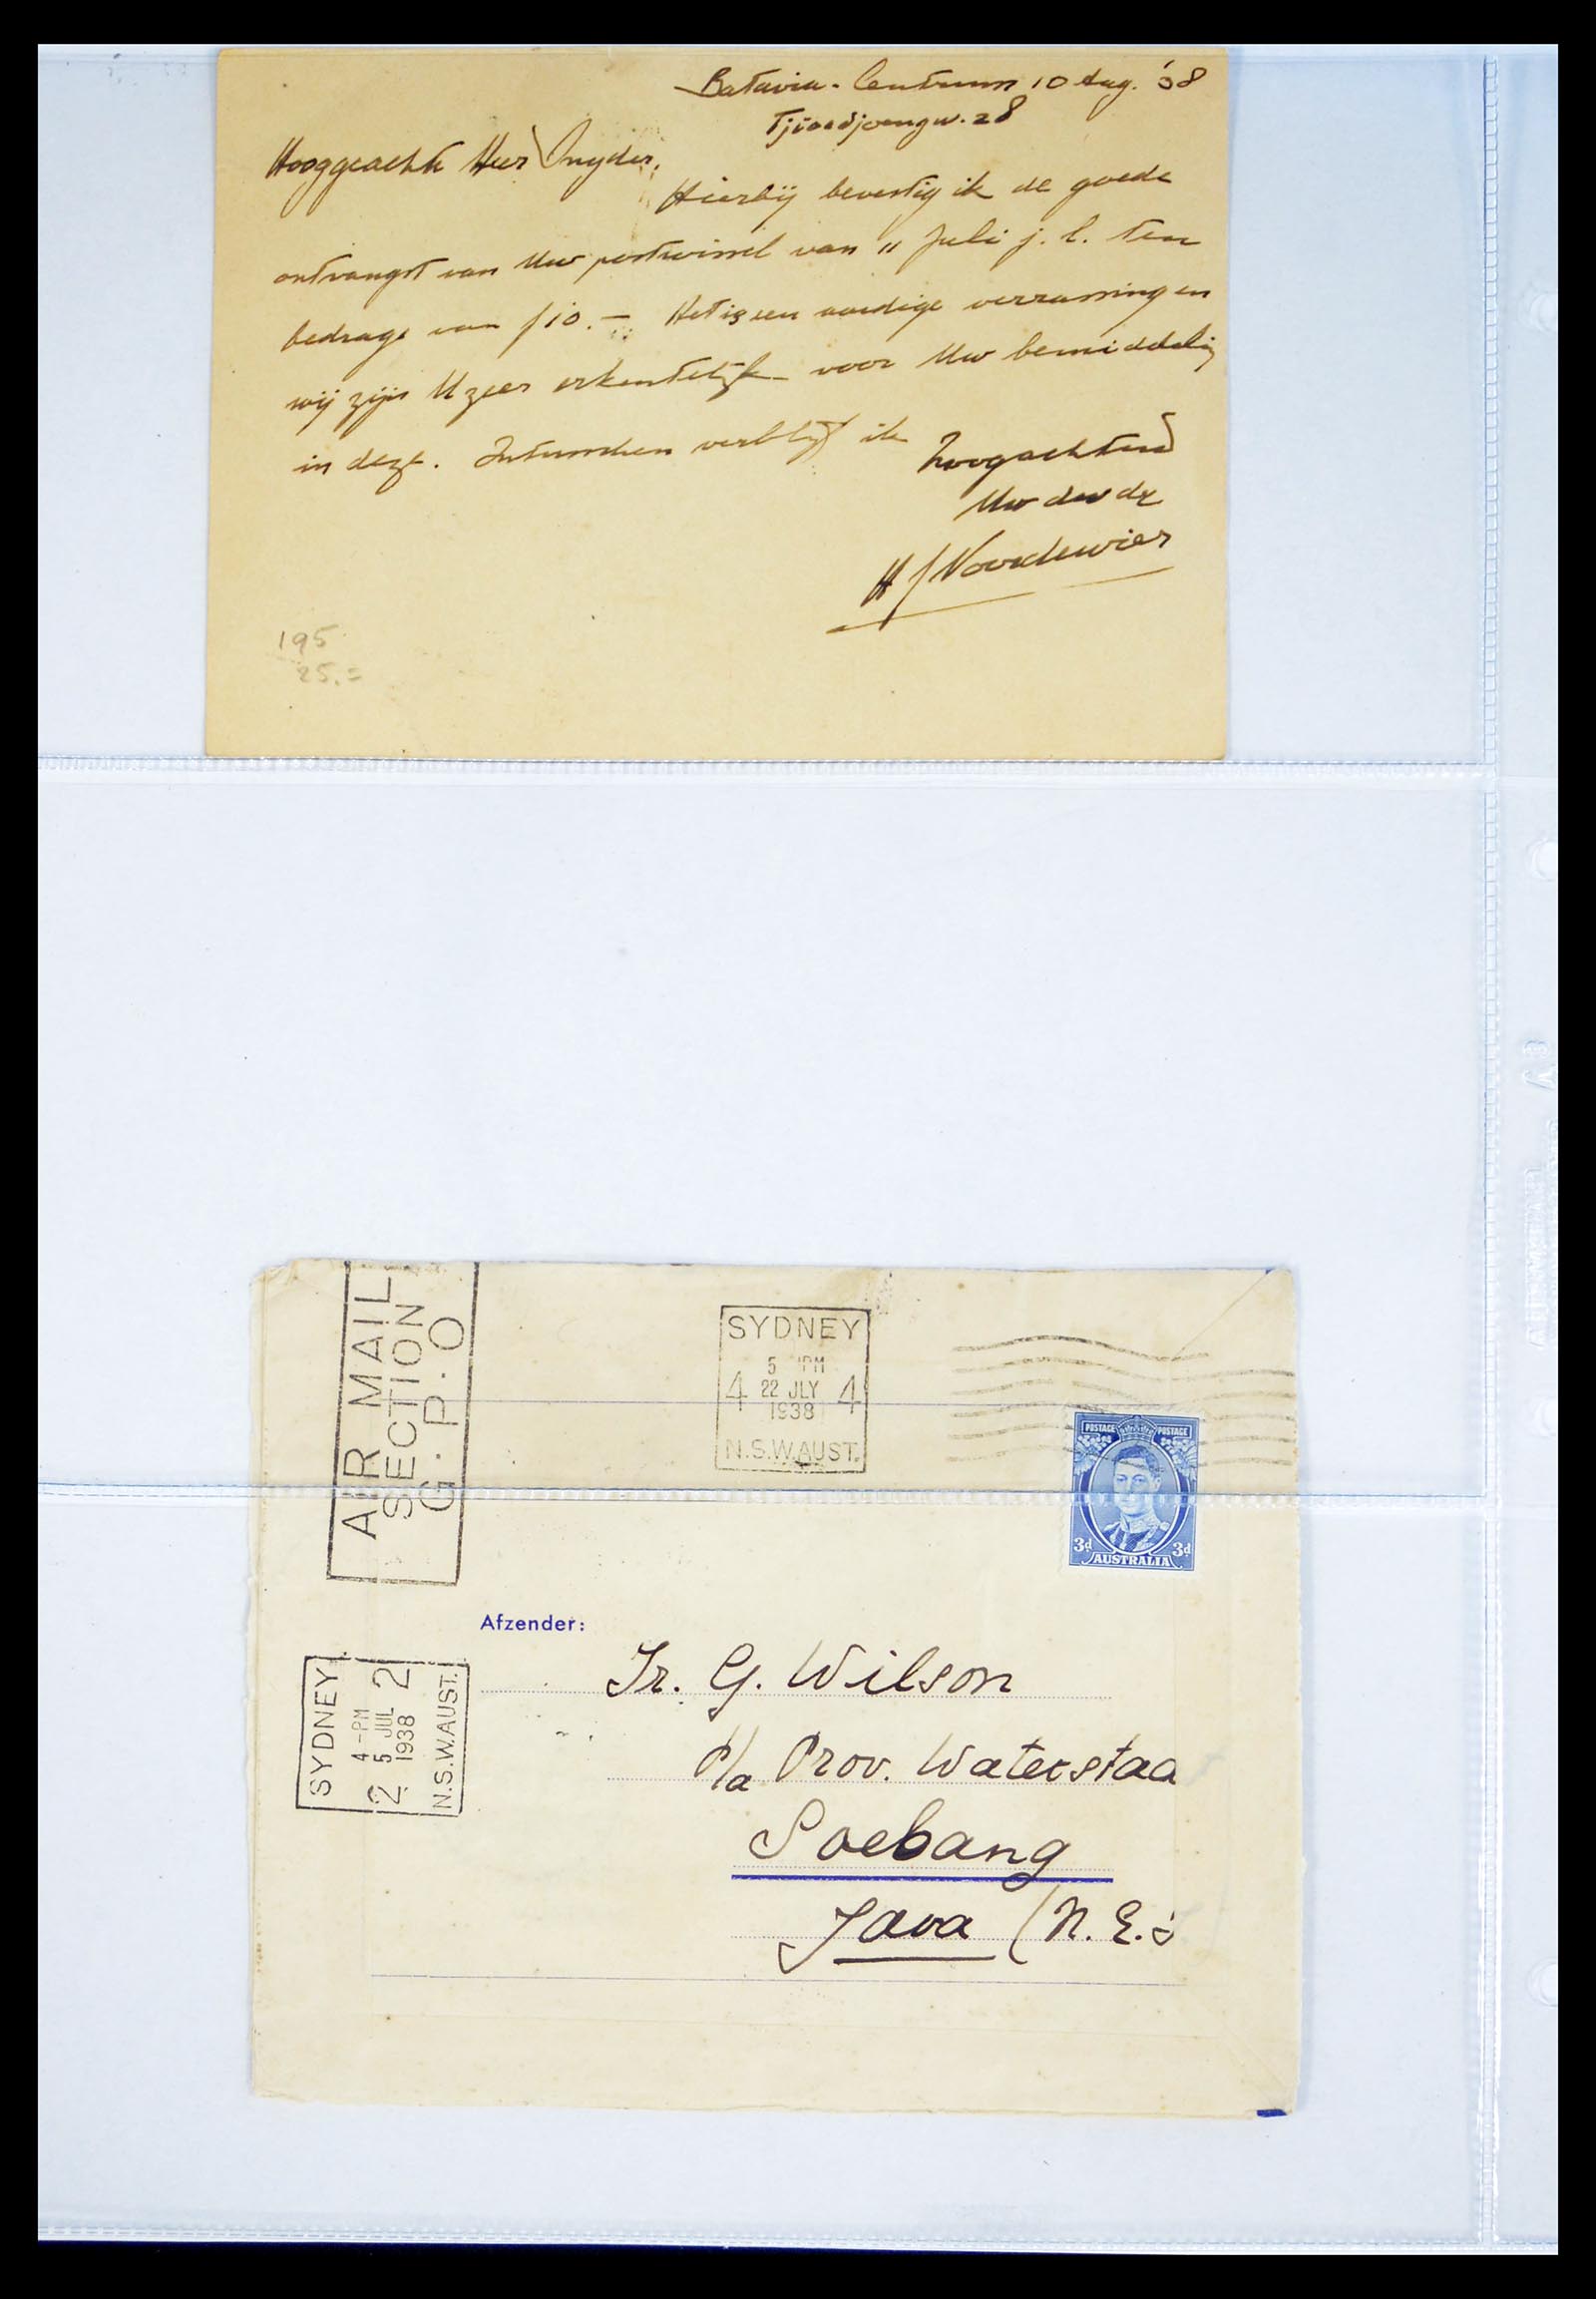 Batavia-Centrum 10 Aug. '38
28
Hooggeachte Heer Snyder,
Hierbij bevestig ik de goede
ontvangst van Uw postwissel van 11 Juli j.l. ten
bedrage van f 10.- Het is een aardige verrassing en
wij zijn U zeer erkentelijk voor Uw bemiddeling
in deze. Intusschen verblijf ik
hoogachtend
Uw dw dr
H J Noordewier
195
25.=
AIR MAIL
SECTION
G.P.O
SYDNEY
5 PM
4 22 JLY 4
1938
N.S.W.AUST.
POSTAGE POSTAGE
3d 3d
AUSTRALIA
Afzender:
Ir. G. Wilson
p/a Prov. Waterstaa
Soebang
Java (N.E.
SYDNEY
4-PM
2 5 JUL 2
1938
N.S.W.AUST.